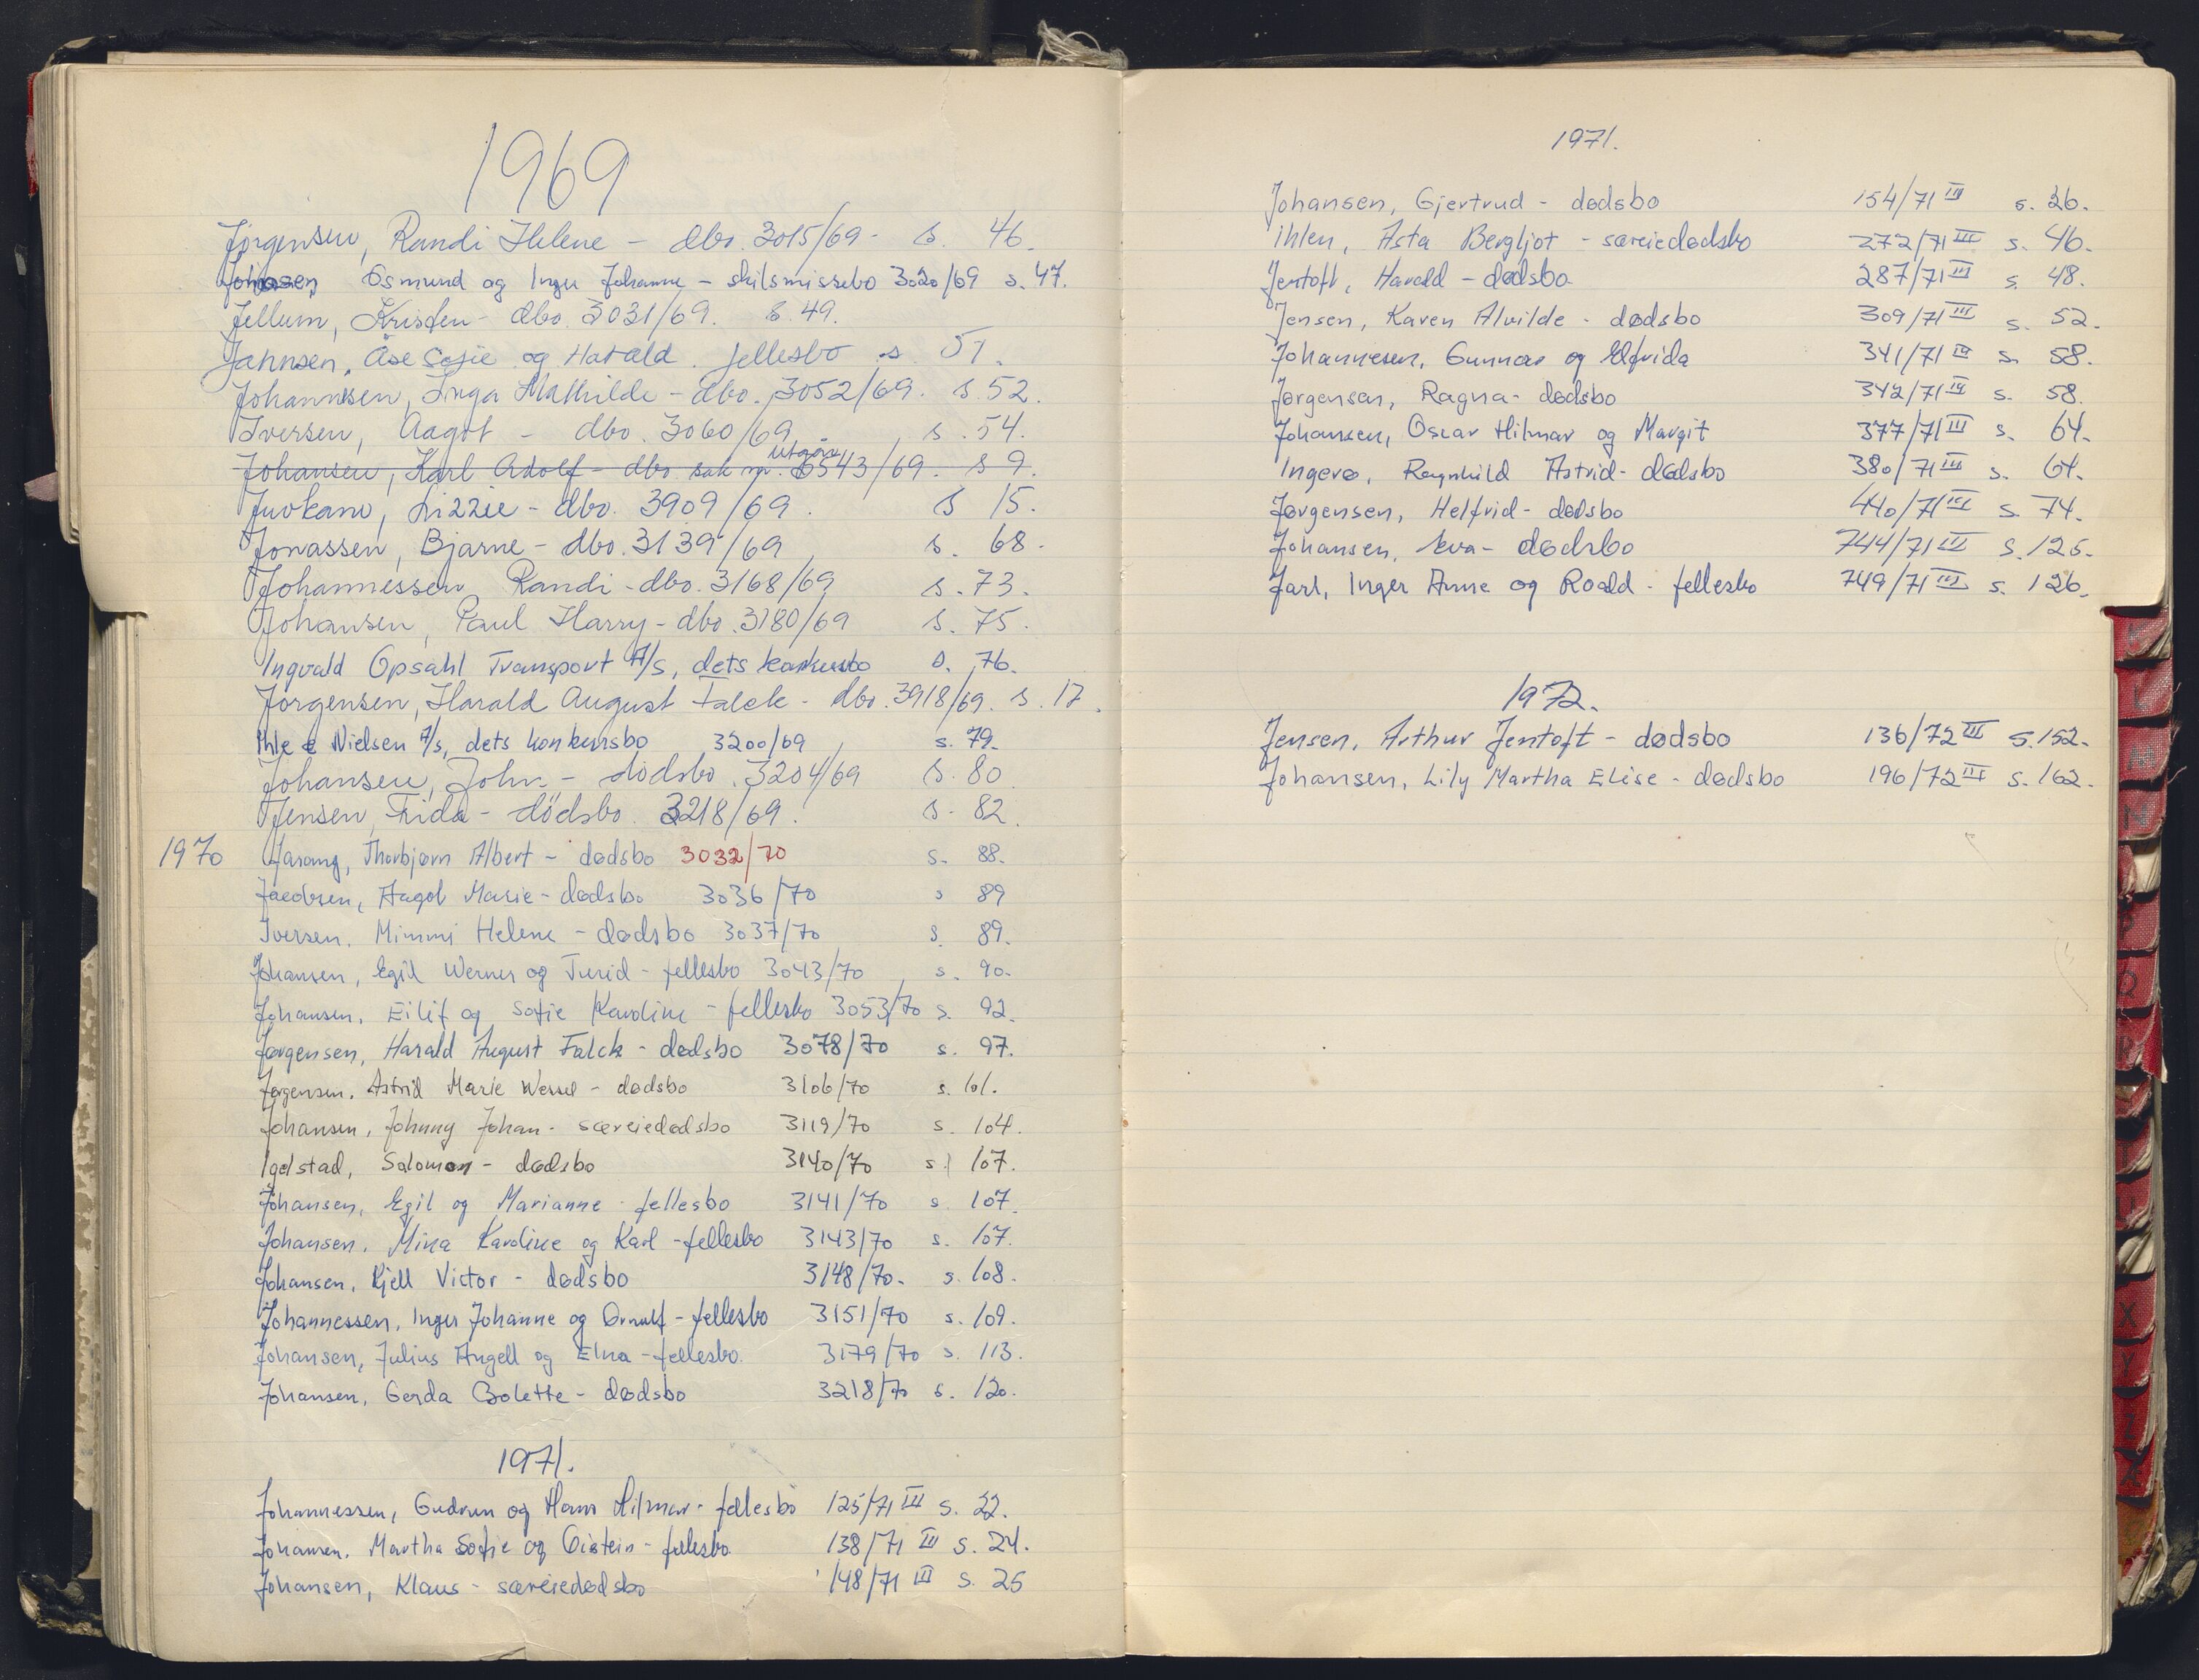 1969
Jørgensen, Randi Helene - dbo. 3015/69 - s. 46.
Osmund og Inger Johanne - skilsmissebo 3020/69 s. 47.
Jellum, Kristen - dbo. 3031/69. s. 49.
Jahnsen, Åse Sofie og Harald. fellesbo s. 51.
Johannesen, Inga Mathilde - dbo. 3052/69. s. 52.
Iversen, Aagot - dbo. 3060/69, s. 54.
utgår
Johansen, Karl Adolf - dbo sak nr. 6543/69. s 9.
Juvkam, Lizzie - dbo. 3909/69. s 15.
Jonassen, Bjarne - dbo. 3139/69, s. 68.
Johannessen Randi - dbo. 3168/69 s. 73.
Johansen, Paul Harry - dbo. 3180/69 s. 75.
Ingvald Opsahl Transport A/S, dets konkursbo s. 76.
Jørgensen, Harald August Falck - dbo. 3918/69. s. 17.
Ihle & Nielsen A/S, dets konkursbo 3200/69, s. 79.
Johansen, John - dødsbo. 3204/69 s. 80
Jensen, Frida - dödsbo. 3218/69. s. 82.
1970 Thorbjørn Albert - dødsbo 3032/70 s. 88.
Jacobsen, Aagot Marie - dødsbo 3036/70 s 89
Iversen. Mimmi Helene - dødsbo 3037/70 s. 89.
Johansen, Egil Werner og Turid - fellesbo 3043/70, s. 90.
Johansen, Eilif og Sofie Karoline - fellesbo 3053/70 s. 92.
Jørgensen, Harald August Falck - dødsbo 3078/70 s. 97.
Jørgensen, Astrid Marie Wessel - dødsbo 3106/70 s. 101.
Johansen, Johnny Johan - særeiedødsbo 3119/70 s. 104.
Igelstad, Salomon - dødsbo 3140/70 s. 107.
Johansen, Egil og Marianne - fellesbo 3141/70 s. 107.
Johansen, Mina Karoline og Karl - fellesbo 3143/70 s. 107.
Johansen, Kjell Victor - dødsbo 3148/70. s. 108.
Johannessen, Inger Johanne og Ornulf - fellesbo 3151/70 s. 109.
Johansen, Julius Angell og Elna - fellesbo. 3179/70 s. 113.
Johansen, Gerda Bolette - dødsbo 3218/70 s. 120.
1971.
Johannessen, Gudrun og Hans Hilmar - fellesbo 125/71 III s. 22.
Johansen, Martha Sofie og Oistein - fellesbo. 138/71 III s. 24.
Johansen, Klaus - særeiedødsbo 148/71 III s. 25
1971.
Johansen, Gjertrud - dødsbo 154/71 III s. 26.
Ihlen, Asta Bergljot - særeiedødsbo 272/71 III s. 46.
Jentoft, Harald - dødsbo. 287/71 III s. 48.
Jensen, Karen Alvilde - dødsbo 309/71 III s. 52.
Johannesen, Gunnar og Elfrida 341/71 III s. 58.
Jørgensen, Ragna - dødsbo 342/71 III s. 58.
Johansen, Oscar Hilmar og Margit 377/71 III s. 64.
Ingerø, Ragnhild Astrid - dødsbo 380/71 III s. 64.
Jørgensen, Helfrid - dødsbo 440/71 III s. 74.
Johansen, Eva - dødsbo 744/71 III s. 125.
Jarl, Inger Anne og Roald - fellesbo 749/71 III s. 126.
1972.
Jensen, Arthur Jentoft - dødsbo 136/72 III s. 152.
Johansen, Lily Martha Elise - dødsbo 196/72 III s. 162.
K
L
M
N
P
Q
R
T
U
X
Y
Z